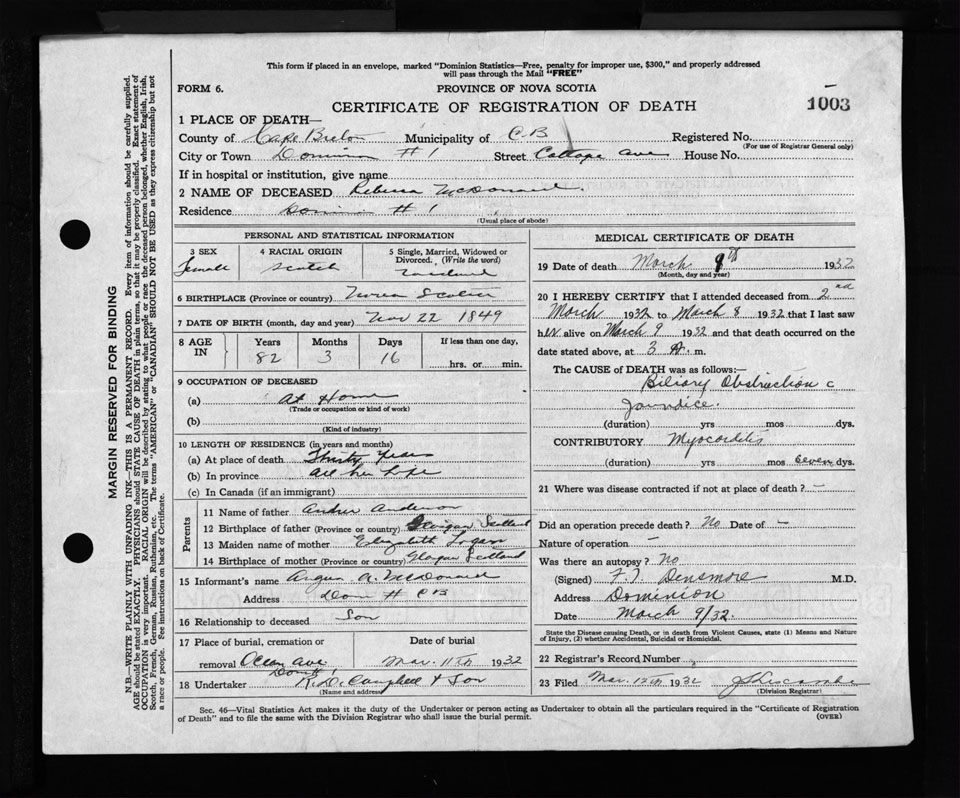 This form if placed in an envelope, marked "Dominion Statistics—Free, penalty for improper use, $300," and properly addressed
will pass through the Mail "FREE"
FORM 6.
PROVINCE OF NOVA SCOTIA
CERTIFICATE OF REGISTRATION OF DEATH
1003
1 PLACE OF DEATH—
County of Cape Breton Municipality of C B Registered No.
(For use of Registrar General only)
City or Town Dominion # 1 Street Ave House No.
If in hospital or institution, give name
2 NAME OF DECEASED Rebecca McDonald.
Residence Dominion # 1
(Usual place of abode)
PERSONAL AND STATISTICAL INFORMATION
3 SEX
Female
4 RACIAL ORIGIN
Scotch
5 Single, Married, Widowed or Divorced. (Write the word)
6 BIRTHPLACE (Province or country) Nova Scotia
7 DATE OF BIRTH (month, day and year) Nov 22 1849
8 AGE IN
Years Months Days
82 3 16
If less than one day,
hrs. or min.
9 OCCUPATION OF DECEASED
(a) At Home
(Trade or occupation or kind of work)
(b)
(Kind of industry)
10 LENGTH OF RESIDENCE (in years and months)
(a) At place of death Thirty Years
(b) In province all her life
(c) In Canada (if an immigrant)
Parents
11 Name of father Anderson
12 Birthplace of father (Province or country) Glasgow Scotland
13 Maiden name of mother Elizabeth Logan
14 Birthplace of mother (Province or country) Glasgow Scotland
15 Informant's name Angus A. McDonald
Address Dom # CB
16 Relationship to deceased Son
17 Place of burial, cremation or removal Ocean Ave
Date of burial
Mar. 11th 1932
18 Undertaker Campbell & Son
(Name and address)
MEDICAL CERTIFICATE OF DEATH
19 Date of death March 9th 1932
(Month, day and year)
20 I HEREBY CERTIFY that I attended deceased from 2nd
March 1932 to March 8 1932 that I last saw
her alive on March 9 1932 and that death occurred on the
date stated above, at 3 A. m.
The CAUSE of DEATH was as follows:—
Biliary Obstruction c
Jaundice.
(duration) yrs mos. dys.
CONTRIBUTORY Myocarditis
(duration) yrs mos Seven dys.
21 Where was disease contracted if not at place of death? —
Did an operation precede death? No Date of —
Nature of operation —
Was there an autopsy? No
(Signed) F. T. Densmore M.D.
Address Dominion
Date March 9/32.
State the Disease causing Death, or in death from Violent Causes, state (1) Means and Nature
of Injury, (2) whether Accidental, Suicidal or Homicidal.
22 Registrar's Record Number
23 Filed Mar. 1932
(Division Registrar)
Sec. 46—Vital Statistics Act makes it the duty of the Undertaker or person acting as Undertaker to obtain all the particulars required in the "Certificate of Registration
of Death" and to file the same with the Division Registrar who shall issue the burial permit.
(OVER)
MARGIN RESERVED FOR BINDING
N.B.—WRITE PLAINLY WITH UNFADING INK—THIS IS A PERMANENT RECORD. Every item of information should be carefully supplied.
AGE should be stated EXACTLY. PHYSICIANS should STATE CAUSE OF DEATH in plain terms, so that it may be properly classified. Exact statement of
OCCUPATION is very important. RACIAL ORIGIN will be described by stating to what people or race the deceased person belonged, whether English, Irish,
Scotch, French, German, Russian, Ruthenian, etc. The terms "AMERICAN" or "CANADIAN" SHOULD NOT BE USED as they express citizenship but not
a race or people. See instructions on back of Certificate.